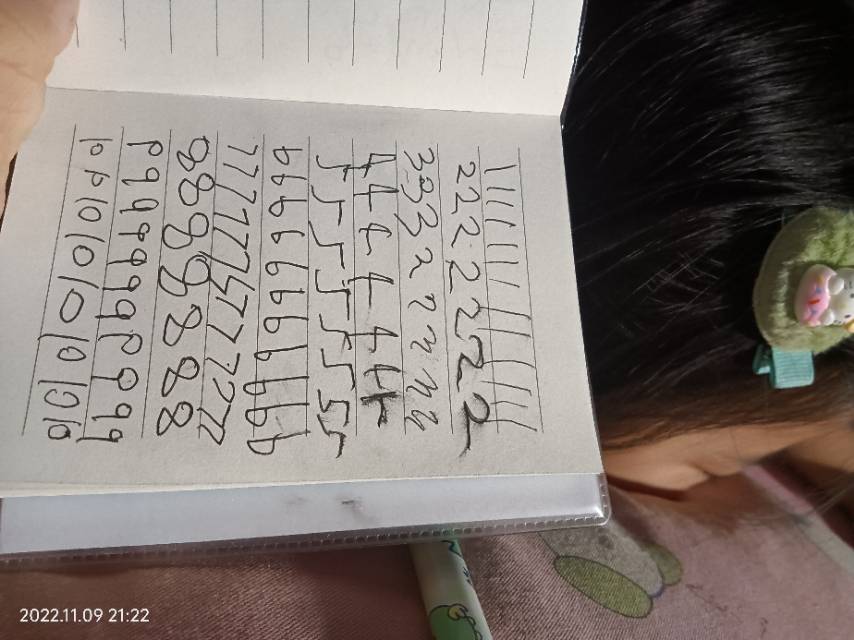 11111111111111
222222222
3333223333
44444444
555555555
66666666666
77777577727
888888888
99999999999
10 10 10 10 10 10 10 10
2022.11.09 21:22